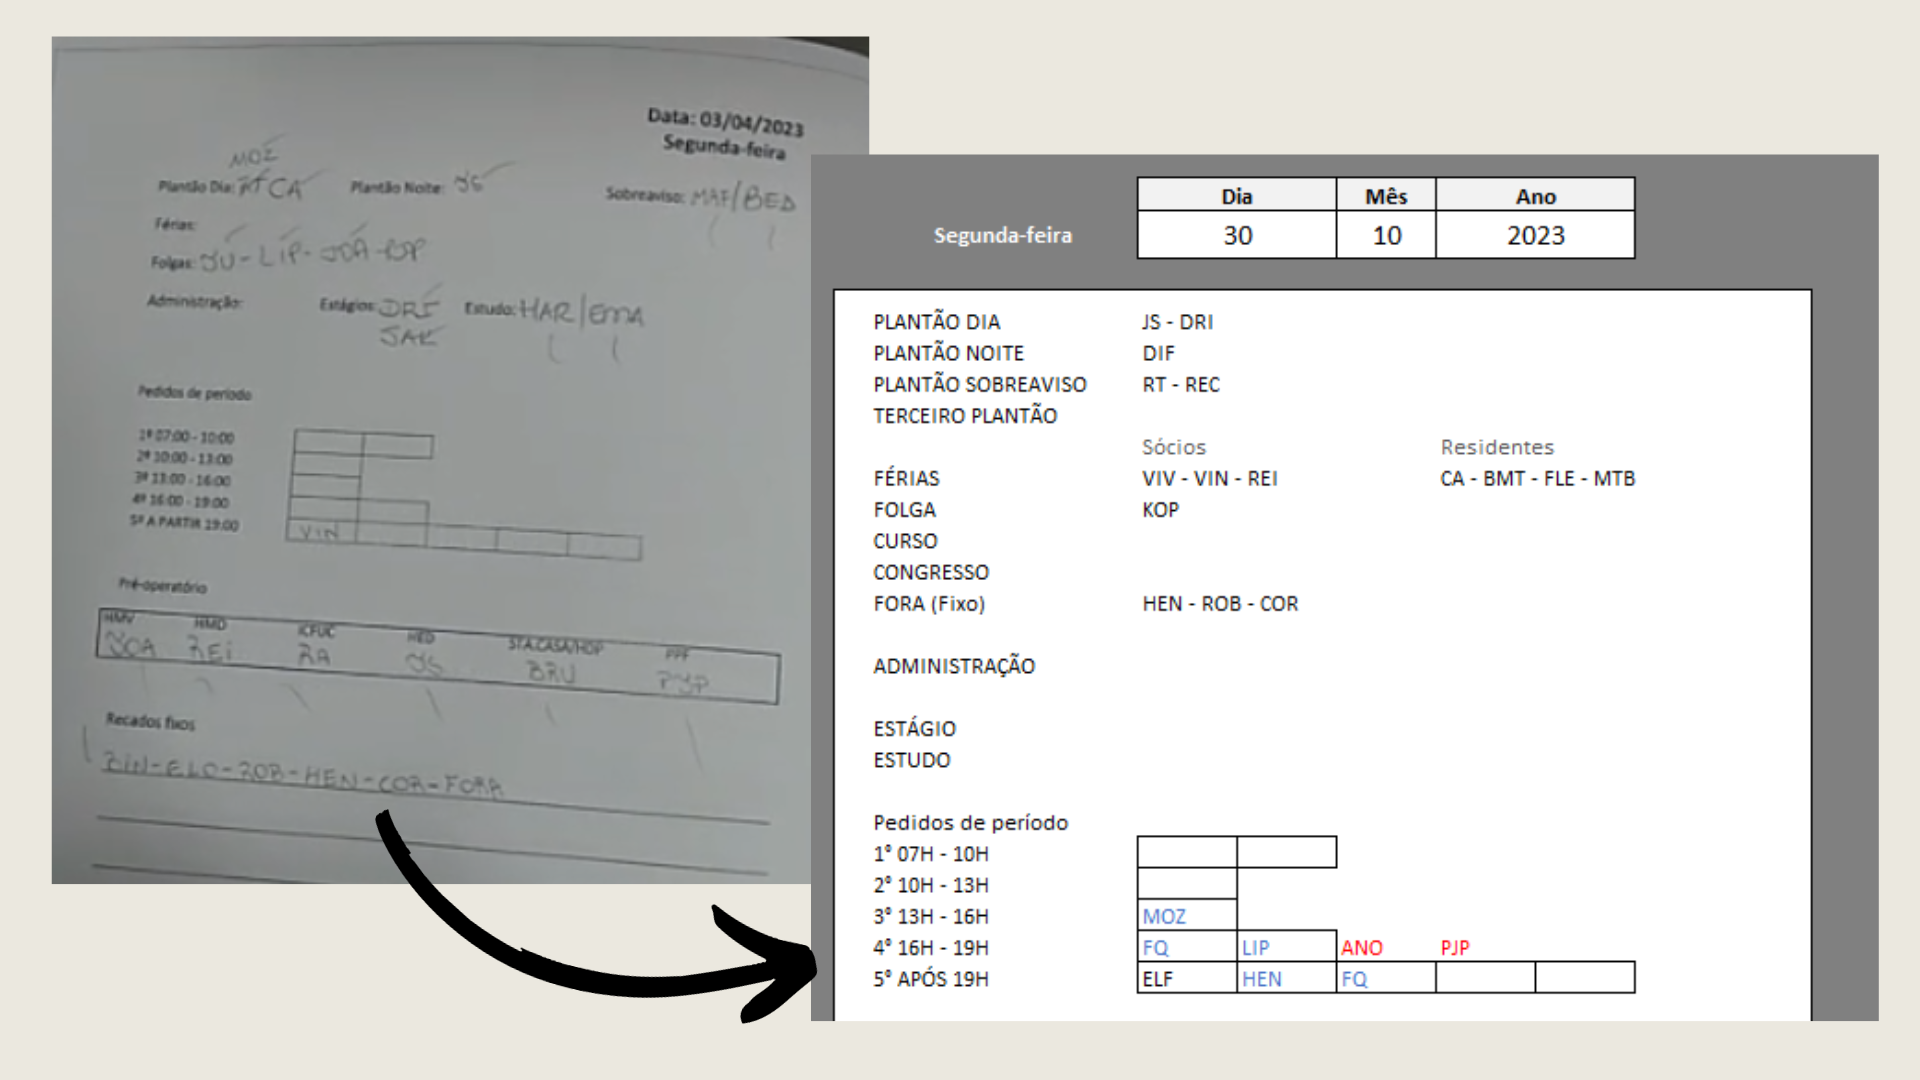 Data: 03/04/2023
Segunda-feira
MOZ
Plantão Dia: RT CA Plantão Noite: JS Sobreaviso: MAF/BED
Férias:
Folgas: JU - LIP - JOA - KOP
Administração: Estágios: DRI Estudo: HAR/EMA
JAK
Pedidos de período
1º 07:00 - 10:00
2º 10:00 - 13:00
3º 13:00 - 16:00
4º 16:00 - 19:00
5º A PARTIR 19:00 VIN
Pré-operatório
HMV HMD ICFUC HED STA.CASA/HDP PPF
JOA REI RA JS BRU PJP
Recados fixos
BIN-ELO-ROB-HEN-COR-FORA
Dia Mês Ano
Segunda-feira 30 10 2023
PLANTÃO DIA JS - DRI
PLANTÃO NOITE DIF
PLANTÃO SOBREAVISO RT - REC
TERCEIRO PLANTÃO
Sócios Residentes
FÉRIAS VIV - VIN - REI CA - BMT - FLE - MTB
FOLGA KOP
CURSO
CONGRESSO
FORA (Fixo) HEN - ROB - COR
ADMINISTRAÇÃO
ESTÁGIO
ESTUDO
Pedidos de período
1º 07H - 10H
2º 10H - 13H
3º 13H - 16H MOZ
4º 16H - 19H FQ LIP ANO PJP
5º APÓS 19H ELF HEN FQ